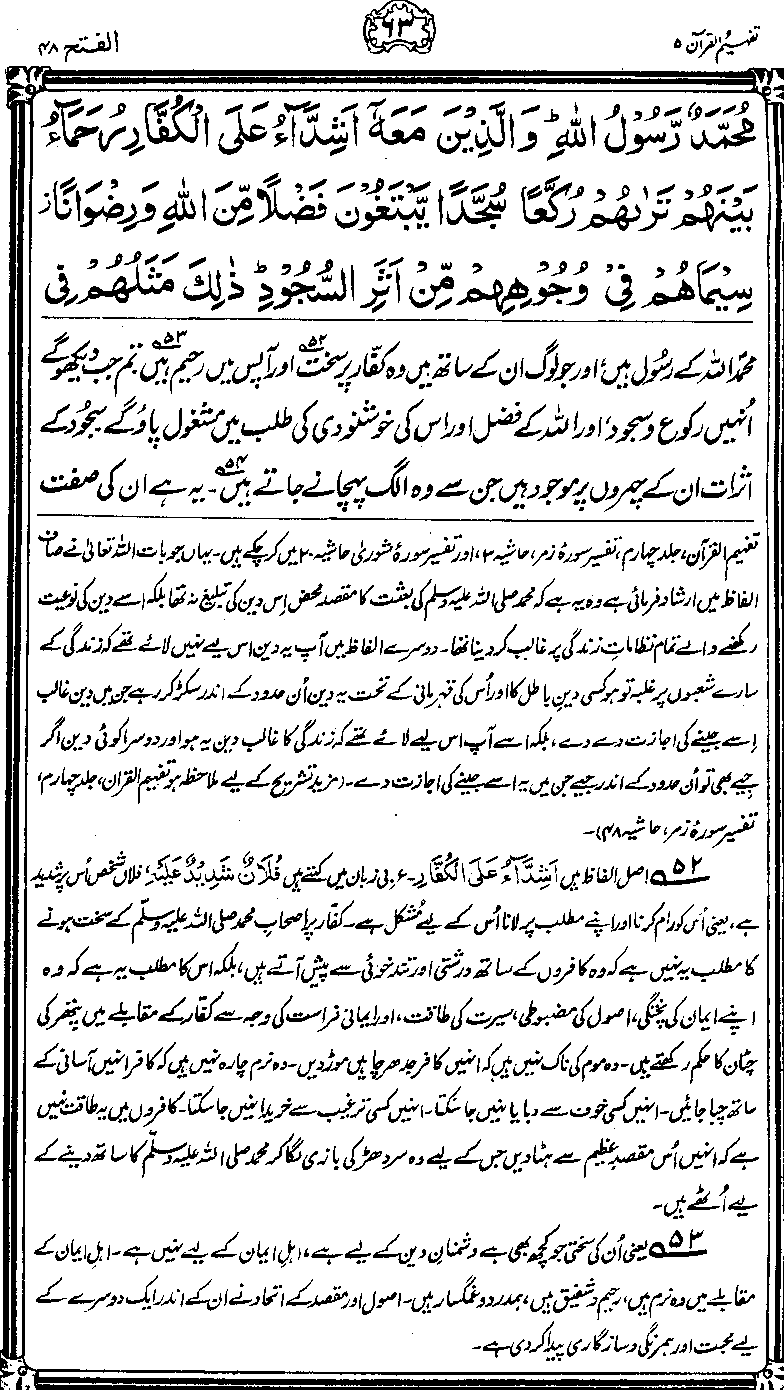 تفہیم القرآن ۵
۶۳
الفتح ۴۸
مُحَمَّدٌ رَّسُوْلُ اللّٰهِ ؕ وَالَّذِيْنَ مَعَهٗۤ اَشِدَّآءُ عَلَى الْكُفَّارِ رُحَمَآءُ
بَيْنَهُمْ تَرٰىهُمْ رُكَّعًا سُجَّدًا يَّبْتَغُوْنَ فَضْلًا مِّنَ اللّٰهِ وَرِضْوَانًا ز
سِيْمَاهُمْ فِيْ وُجُوْهِهِمْ مِّنْ اَثَرِ السُّجُوْدِ ؕ ذٰلِكَ مَثَلُهُمْ فِي
محمدؐ اللہ کے رسول ہیں، اور جو لوگ ان کے ساتھ ہیں وہ کفار پر سخت۵۲ اور آپس میں رحیم ہیں۵۳۔ تم جب دیکھو گے
اُنہیں رکوع و سجود، اور اللہ کے فضل اور اس کی خوشنودی کی طلب میں مشغول پاؤ گے۔ سجود کے
اثرات ان کے چہروں پر موجود ہیں جن سے وہ الگ پہچانے جاتے ہیں۵۴۔ یہ ہے ان کی صفت
تفہیم القرآن، جلد چہارم، تفسیر سورۂ زمر، حاشیہ ۲، اور تفسیر سورۂ شوریٰ حاشیہ ۲۰ میں کر چکے ہیں۔ یہاں جو بات اللہ تعالیٰ نے صاف
الفاظ میں ارشاد فرمائی ہے وہ یہ ہے کہ محمد صلی اللہ علیہ وسلم کی بعثت کا مقصد محض اس دین کی تبلیغ نہ تھا بلکہ اسے دین کی نوعیت
رکھنے والے تمام نظامات زندگی پر غالب کر دینا تھا۔ دوسرے الفاظ میں آپ یہ دین اس لیے نہیں لائے تھے کہ زندگی کے
سارے شعبوں پر غلبہ تو ہو کسی دین باطل کا اور اُس کی قہرمانی کے تحت یہ دین اُن حدود کے اندر سکڑ کر رہے جن میں دین غالب
اِسے جینے کی اجازت دے دے، بلکہ اسے آپ اس لیے لائے تھے کہ زندگی کا غالب دین یہ ہو اور دوسرا کوئی دین اگر
جیے بھی تو اُن حدود کے اندر جیے جن میں یہ اسے جینے کی اجازت دے۔ (مزید تشریح کے لیے ملاحظہ ہو تفہیم القرآن، جلد چہارم،
تفسیر سورۂ زمر، حاشیہ ۴۸)۔
۵۲ اصل الفاظ ہیں اَشِدَّآءُ عَلَى الْكُفَّارِ۔ عربی زبان میں کہتے ہیں فُلَانٌ شَدِيْدٌ عَلَيْهِ، فلاں شخص اُس پر شدید
ہے، یعنی اُس کو رام کرنا اور اپنے مطلب پر لانا اُس کے لیے مُشکل ہے۔ کفار پر اصحابِ محمد صلی اللہ علیہ وسلّم کے سخت ہونے
کا مطلب یہ نہیں ہے کہ وہ کافروں کے ساتھ درشتی اور تند خوئی سے پیش آتے ہیں، بلکہ اس کا مطلب یہ ہے کہ وہ
اپنے ایمان کی پختگی، اصول کی مضبوطی، سیرت کی طاقت، اور ایمانی فراست کی وجہ سے کفار کے مقابلے میں پتھر کی
چٹان کا حکم رکھتے ہیں۔ وہ موم کی ناک نہیں ہیں کہ انہیں کافر جدھر چاہیں موڑ دیں۔ وہ نرم چارہ نہیں ہیں کہ کافر انہیں آسانی کے
ساتھ چبا جائیں۔ انہیں کسی خوف سے دبایا نہیں جا سکتا۔ انہیں کسی ترغیب سے خریدا نہیں جا سکتا۔ کافروں میں یہ طاقت نہیں
ہے کہ انہیں اُس مقصدِ عظیم سے ہٹا دیں جس کے لیے وہ سر دھڑ کی بازی لگا کر محمد صلی اللہ علیہ وسلّم کا ساتھ دینے کے
لیے اُٹھے ہیں۔
۵۳ یعنی اُن کی سختی جو کچھ بھی ہے دشمنانِ دین کے لیے ہے، اہلِ ایمان کے لیے نہیں ہے۔ اہلِ ایمان کے
مقابلے میں وہ نرم ہیں، رحیم و شفیق ہیں، ہمدرد و غمگسار ہیں۔ اصول اور مقصد کے اتحاد نے ان کے اندر ایک دوسرے کے
لیے محبت اور ہمرنگی و سازگاری پیدا کر دی ہے۔